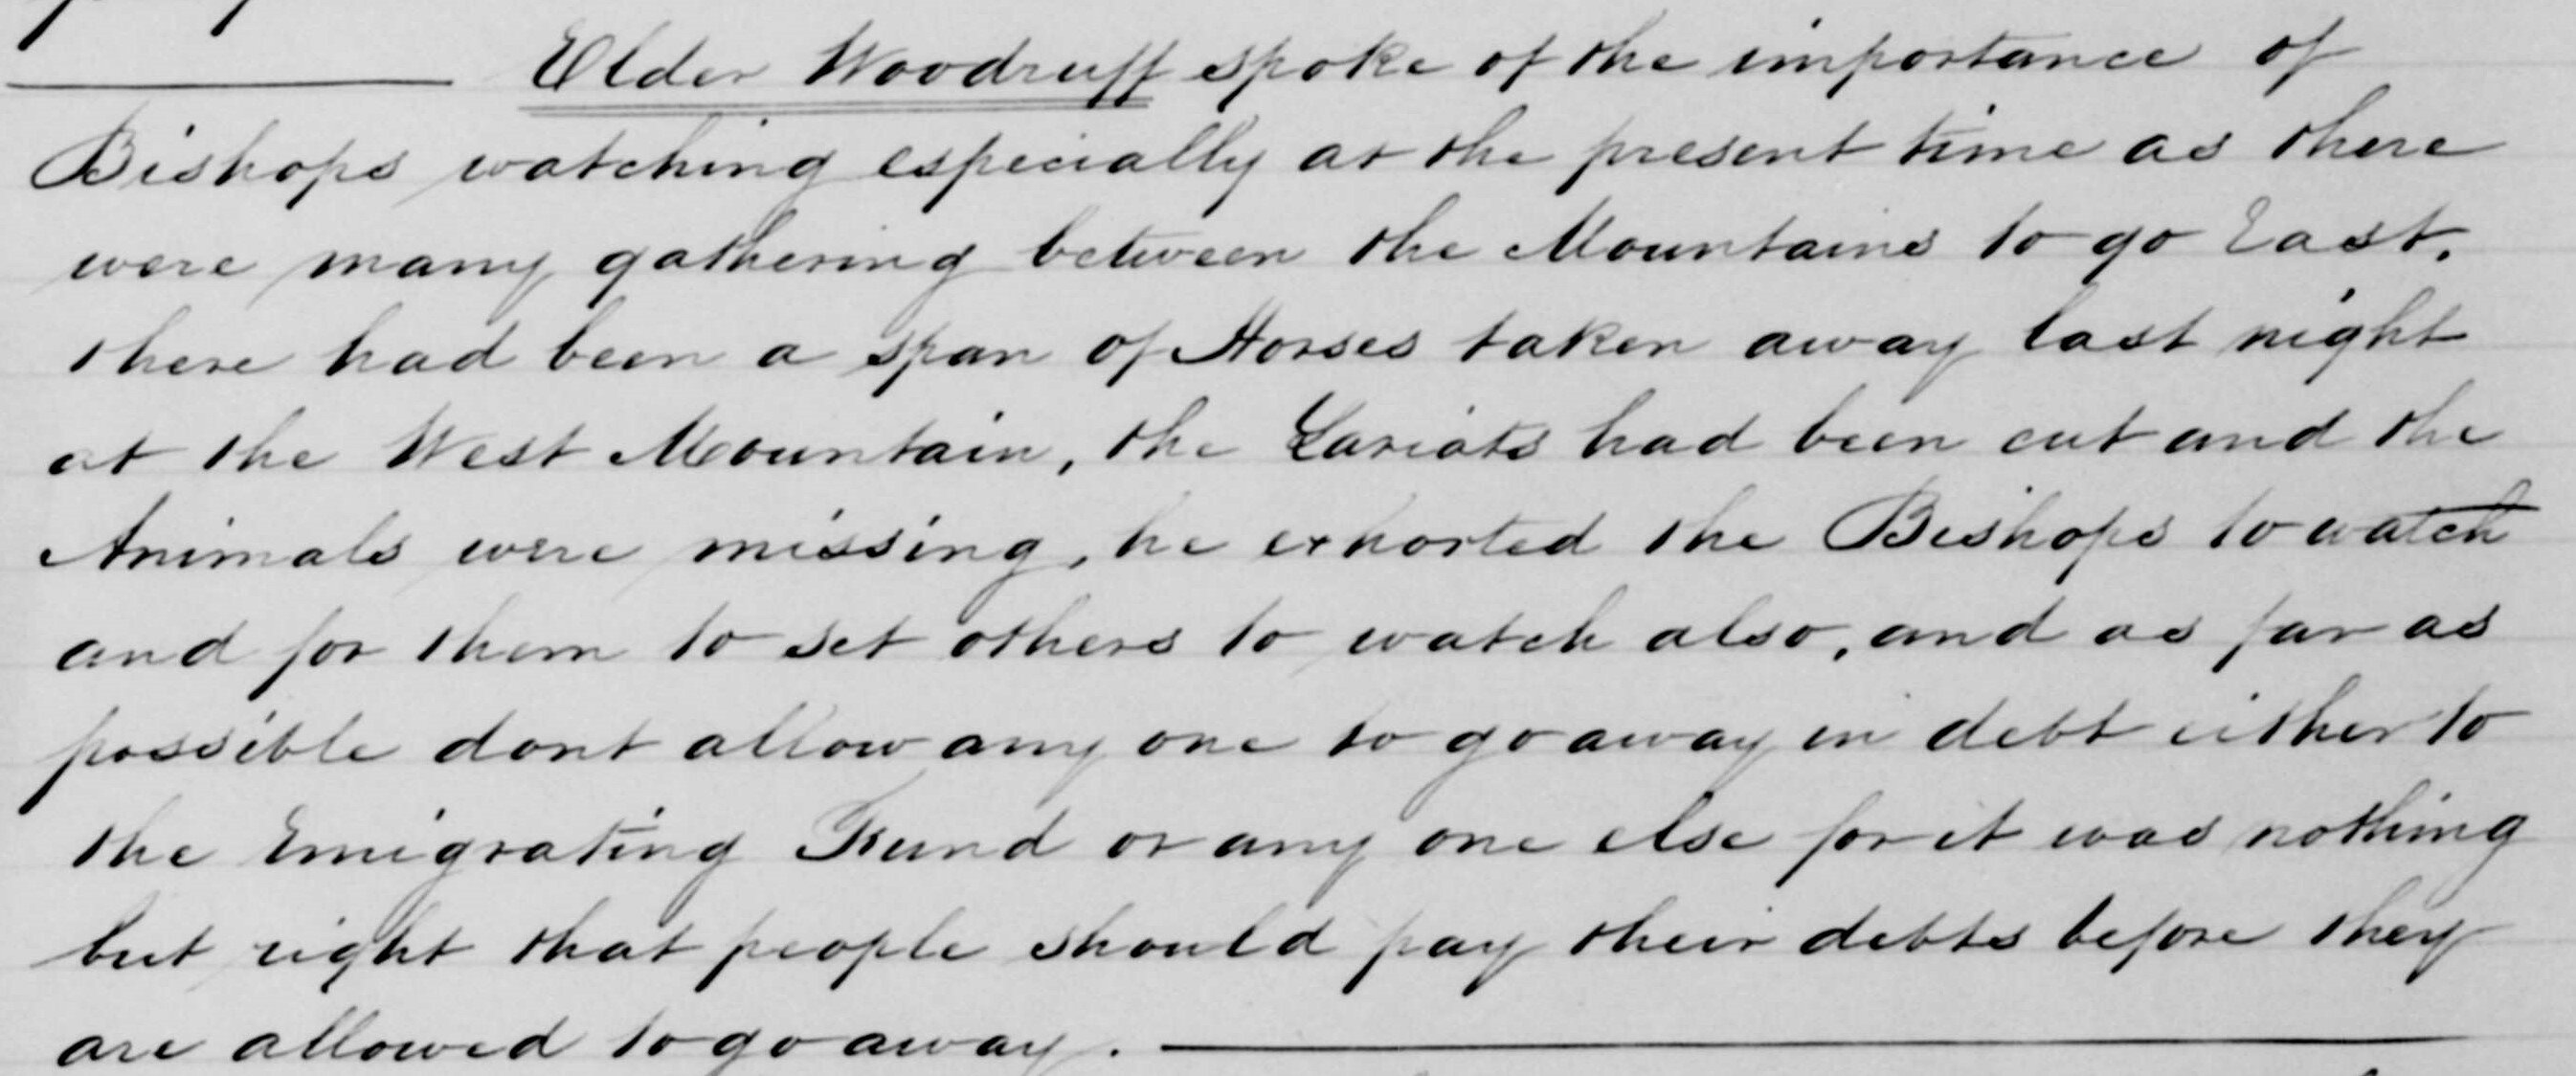 Elder Woodruff spoke of the importance of
Bishops watching especially at the present time as there
were many gathering between the Mountains to go East.
there had been a span of Horses taken away last night
at the West Mountain, the Lariats had been cut and the
Animals were missing, he exhorted the Bishops to watch
and for them to set others to watch also, and as far as
possible dont allow any one to go away in debt either to
the Emigrating Fund or any one else for it was nothing
but right that people should pay their debts before they
are allowed to go away.